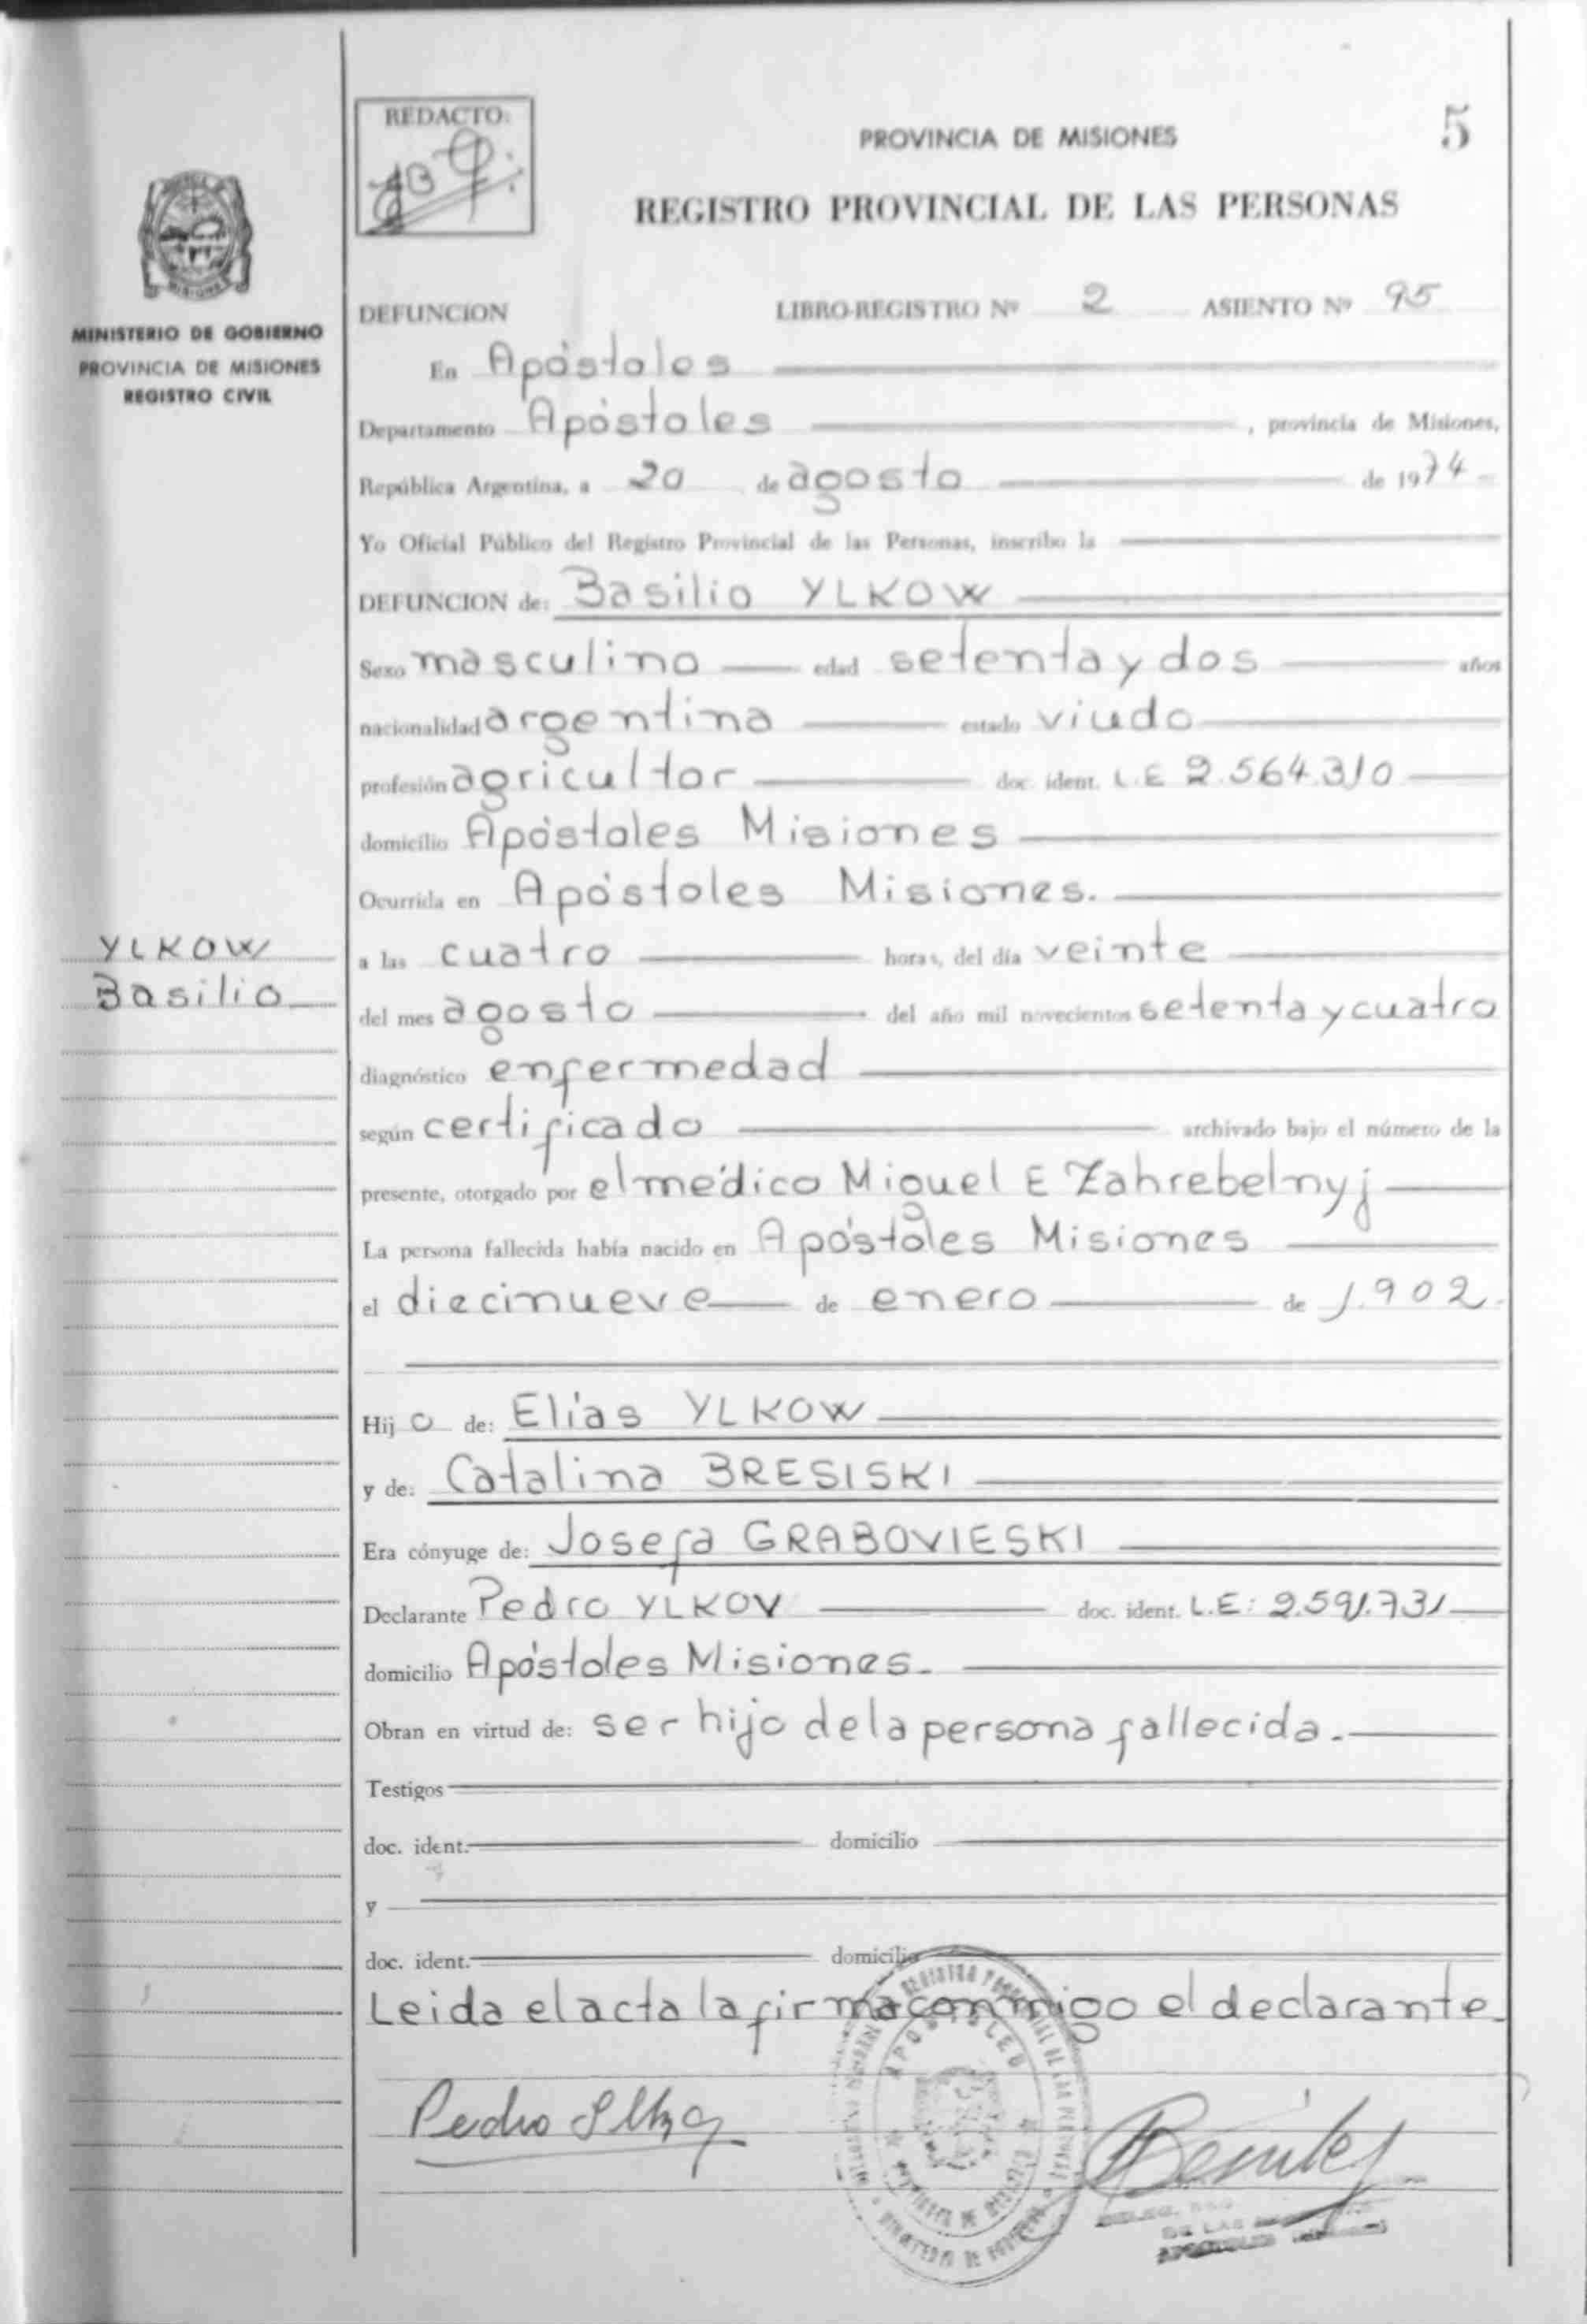 REDACTO:
5
PROVINCIA DE MISIONES
REGISTRO PROVINCIAL DE LAS PERSONAS
MISIONES
MINISTERIO DE GOBIERNO
PROVINCIA DE MISIONES
REGISTRO CIVIL
DEFUNCION LIBRO-REGISTRO Nº 2 ASIENTO Nº 95
En Apóstoles
Departamento Apóstoles, provincia de Misiones,
República Argentina, a 20 de agosto de 1974
Yo Oficial Público del Registro Provincial de las Personas, inscribo la
DEFUNCION de: Basilio YLKOW
Sexo masculino edad setenta y dos años
nacionalidad argentina estado viudo
profesión agricultor doc. ident. L.E 2.564.310
domicilio Apóstoles Misiones
Ocurrida en Apóstoles Misiones.
YLKOW
Basilio
a las cuatro horas, del día veinte
del mes agosto del año mil novecientos setenta y cuatro
diagnóstico enfermedad
según certificado archivado bajo el número de la
presente, otorgado por el médico Miguel E Zahrebelnyj
La persona fallecida había nacido en Apóstoles Misiones
el diecinueve de enero de 1.902.
Hijo de: Elías YLKOW
y de: Catalina BRESISKI
Era cónyuge de: Josefa GRABOVIESKI
Declarante Pedro YLKOV doc. ident. L.E: 2.591.731
domicilio Apóstoles Misiones.
Obran en virtud de: ser hijo de la persona fallecida.
Testigos
doc. ident. domicilio
y
doc. ident. domicilio
Leida el acta la firma conmigo el declarante.
Pedro
Benitez
APOSTOLES